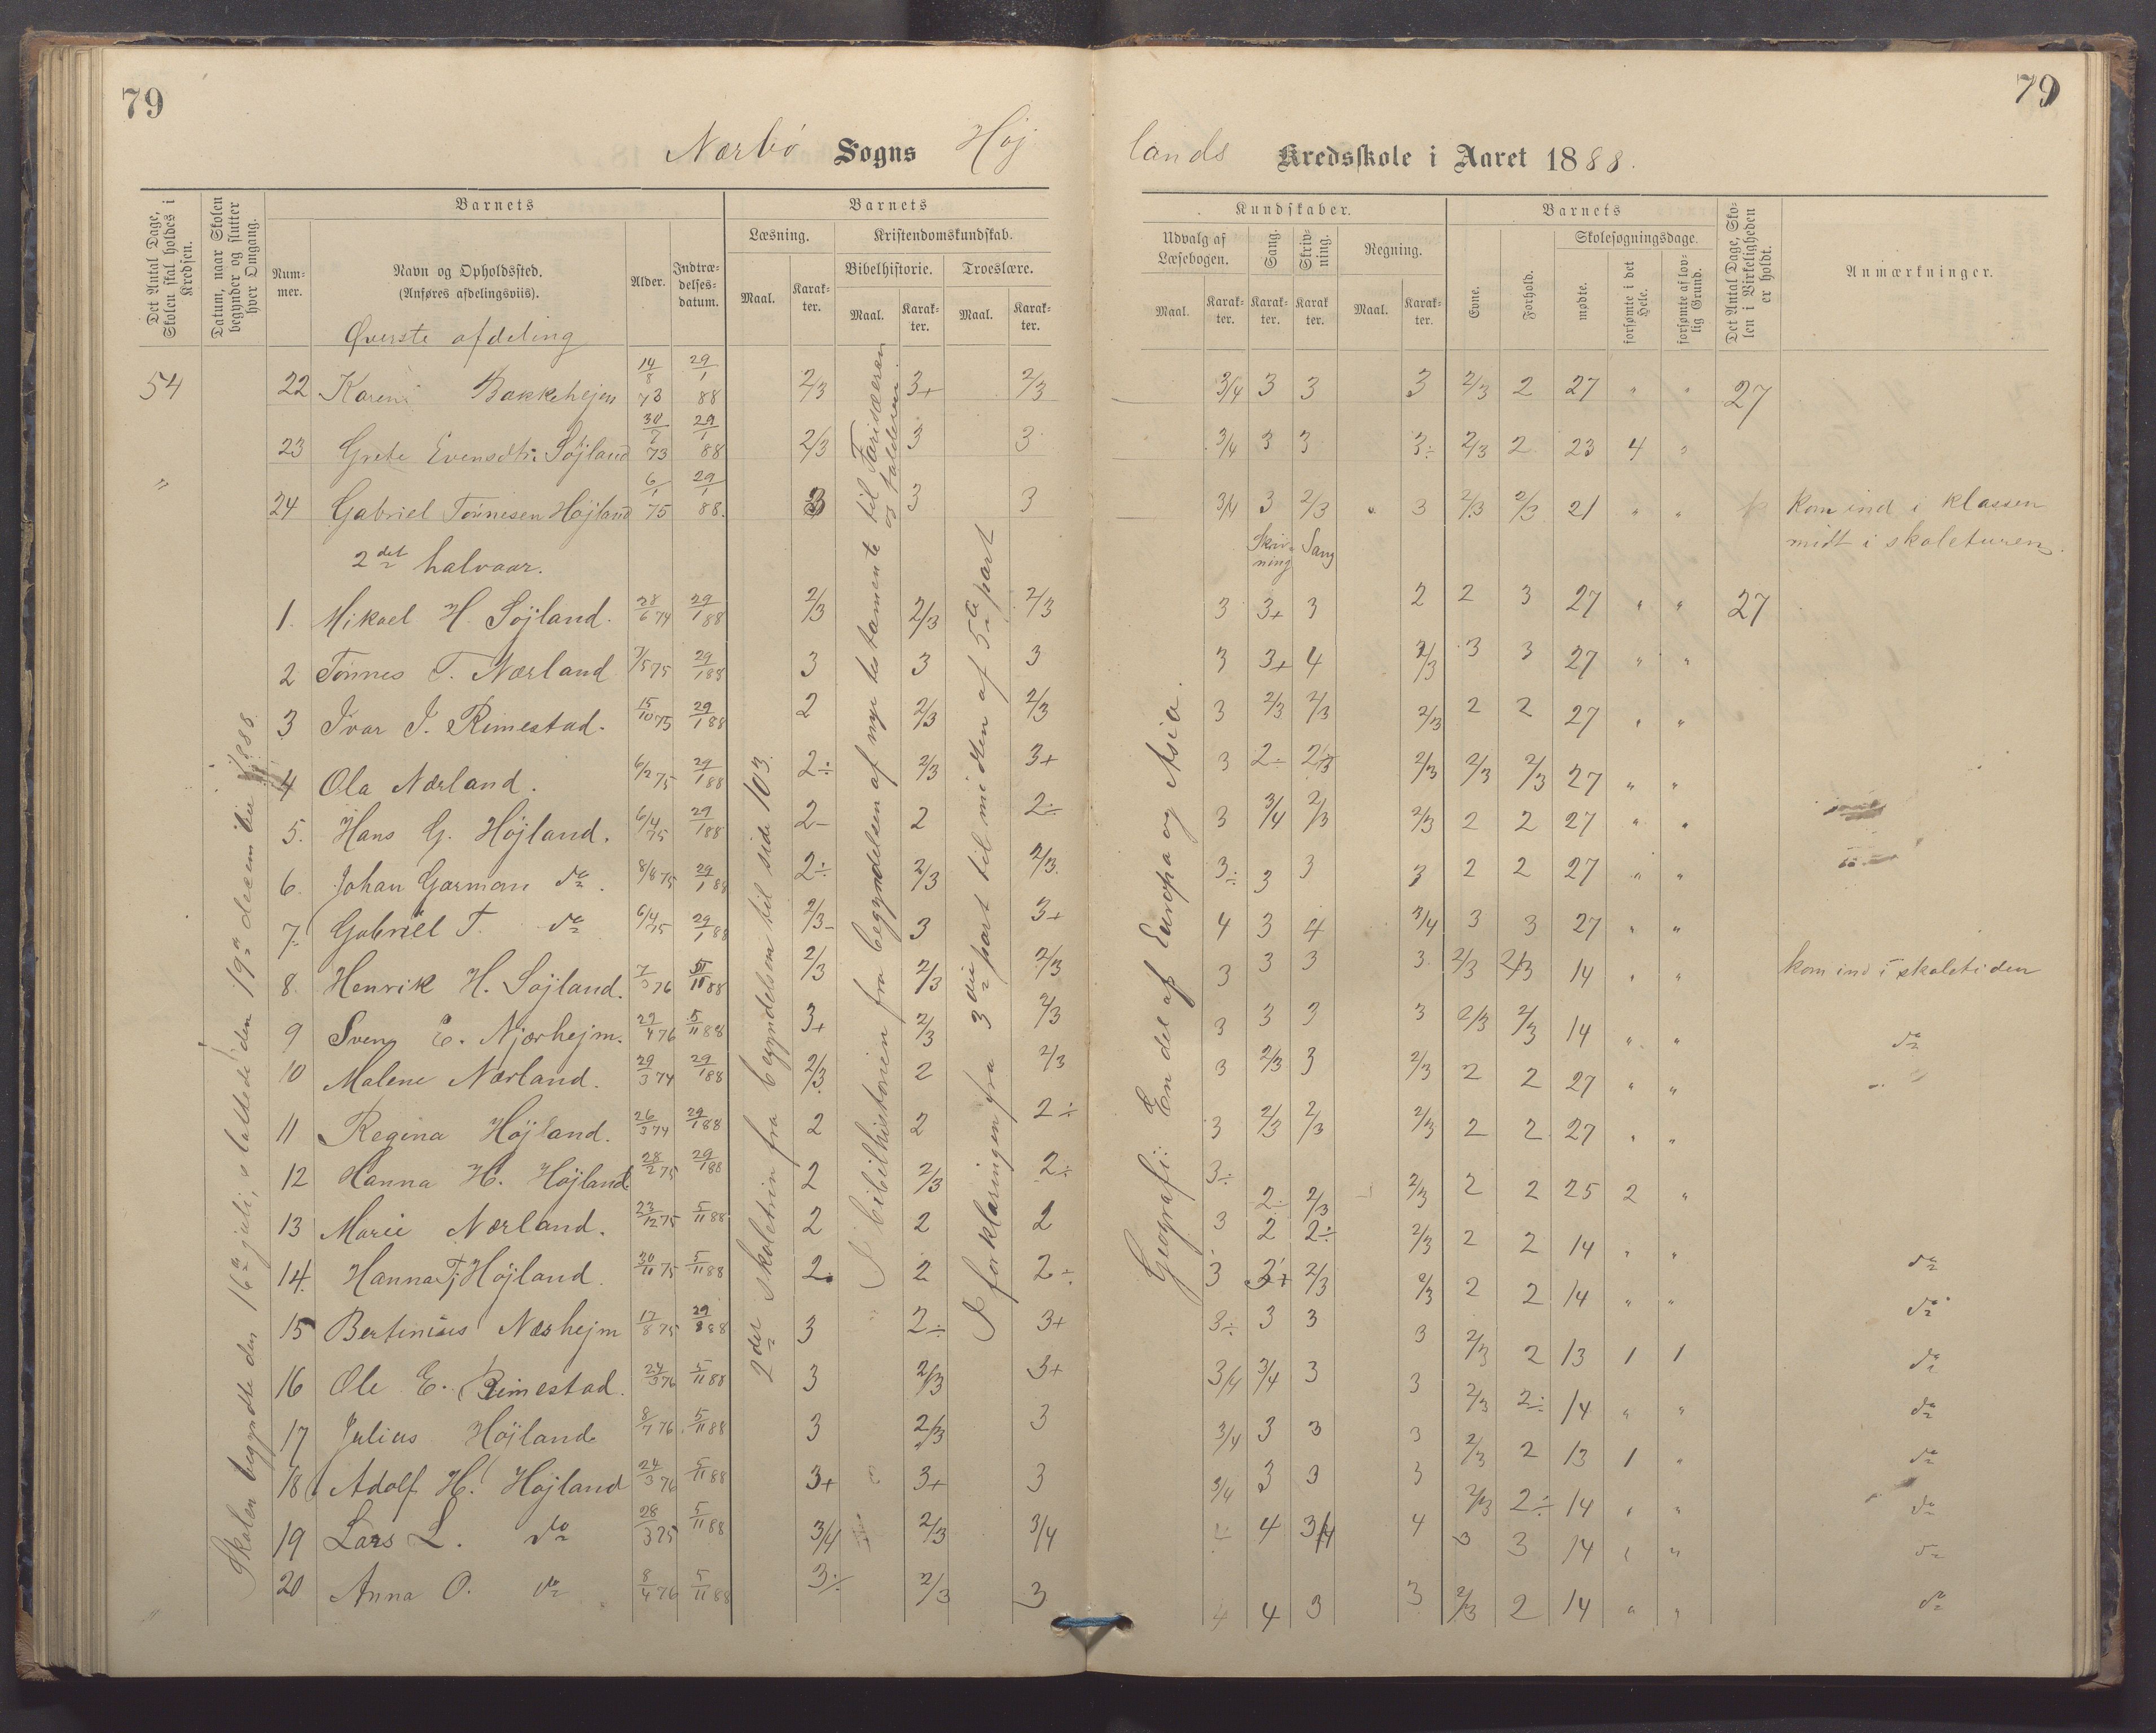 79
79
Nærbø Sogns Høj
lands Kredsskole i Aaret 1888.
Det Antal Dage, Skolen skal holdes i Kredsen.
Datum, naar Skolen begynder og slutter hver Omgang.
Barnets
Num-mer.
Navn og Opholdssted.
(Anføres afdelingsviis).
Alder.
Indtræ-delses-datum.
Barnets
Læsning.
Maal.
Karak-ter.
Kristendomskundskab.
Bibelhistorie.
Maal.
Karak-ter.
Troeslære.
Maal.
Karak-ter.
Kundskaber.
Udvalg af Læsebogen.
Maal.
Karak-ter.
Sang.
Karak-ter.
Skriv-ning.
Karak ter.
Regning.
Maal.
Karak-ter.
Barnets
Evne.
Forhold.
Skolesøgningsdage.
mødte.
forsømte i det Hele.
forsømte af lov-lig Grund.
Det Antal Dage, Sko-len i Virkeligheden er holdt.
Anmærkninger.
Øverste afdeling
54 22 Karen Bakkehejen 14/8 73 29/1 88 2/3 3+ 2/3 3/4 3 3 3 2/3 2 27 " " 27
23 Grete Evensdtr. Söjland 30/7 73 29/1 88 2/3 3 3 3/4 3 3 3÷ 2/3 2 23 4 "
" 24 Gabriel Tönnesen Höjland 6/1 75 29/1 88. 3 3 3 3/4 3 2/3 3 2/3 2/3 21 " " kom ind i klassen
midt i skoleturen.
2det halvaar.
Skriv-ning Sang
1. Mikael H. Söjland. 28/6 74 29/1 88 2/3 2/3 2/3 3 3+ 3 2 2 3 27 " " 27
2 Tönnes T. Nærland 7/5 75 29/1 88 3 3 3 3 3+ 4 2/3 3 3 27 " "
3 Ivar J. Rimestad. 15/10 75 29/1 88 2 2/3 2/3 3 2/3 2/3 2/3 2 2 27 " "
4 Ola Nærland. 6/2 75 29/1 88 2÷ 2/3 3+ 3 2÷ 2/3 2/3 2/3 2/3 27 " "
5. Hans G. Höjland. 6/4 75 29/1 88 2- 2 2÷ 3 3/4 2/3 2/3 2 2 27 " "
6. Johan Garman do. 8/8 75 29/1 88 2÷ 2/3 2/3. 3÷ 3 3 3 2 2 27 " "
7 Gabriel T. do 6/4 75 29/1 88 2/3- 3 3+ 4 3 4 3/4 3 3 27 " "
8. Henrik H. Söjland. 7/3 76 5/11 88 2/3 2/3 2/3 3 3 3 3 2/3 2/3 14 " " kom ind i skoletiden
9 Sven E. Njærhejm. 29/4 76 5/11 88 3+ 2/3 2/3 3 3 3 3 2/3 2/3 14 " " do
10 Malene Nærland. 29/3 74 29/1 88 2/3 2 2/3 3 2/3 3 2/3 2 2 27 " "
11 Regina Höjland. 26/3 74 29/1 88 2 2 2÷ 3 2/3 2/3 2/3 2 2 27 " "
12 Hanna H. Höjland 28/2 75 29/1 88 2 2/3 2÷ 3÷ 2÷ 2/3 2/3 2 2 25 2 "
13 Marie Nærland. 23/12 75 5/11 88 2 2 2 3 2 2÷ 2/3 2 2 14 " " do
14. Hanna Tj Höjland. 5/11 88 2 2 2÷ 3 3+ 2/3 2/3 2 2 14 " " do
15 Nærhejm 17/8 75 3 2÷ 3+ 3÷ 3 3 3 2/3 2 13 1 1 do
16 Ole E. Rimestad. 24/3 76 5/11 88 3 2/3 3+ 3/4 3/4 3 3 2/3 2÷ 14 " " do
17 Julius Höjland 5/11 88 3 2/3 3 3/4 3 3 3 2/3 2 13 1 " do
18 Adolf H. Höjland 24/3 76 5/11 88 3+ 3+ 3 3/4 3 3 3 2/3 2÷ 14 " " do
19 Lars L. do 28/3 75 5/11 88 3/4 2/3 3/4 4 3/4 4 3 3 14 " " do
20 Anna O. do 8/4 76 5/11 88 3÷ 2/3 3 4 4 3 3 2/3 2 14 " " do
Skolen begyndte den 16de juli, sluttede den 19de december 1888.
2det skoletrin fra begyndelsen til side 103.
I bibelhistorien fra begyndelsen af nye testamente til Farisæeren og tolderen.
I forklaringen fra 3die part til midten af 5te part
Geografi: En del af Europa og Asia.